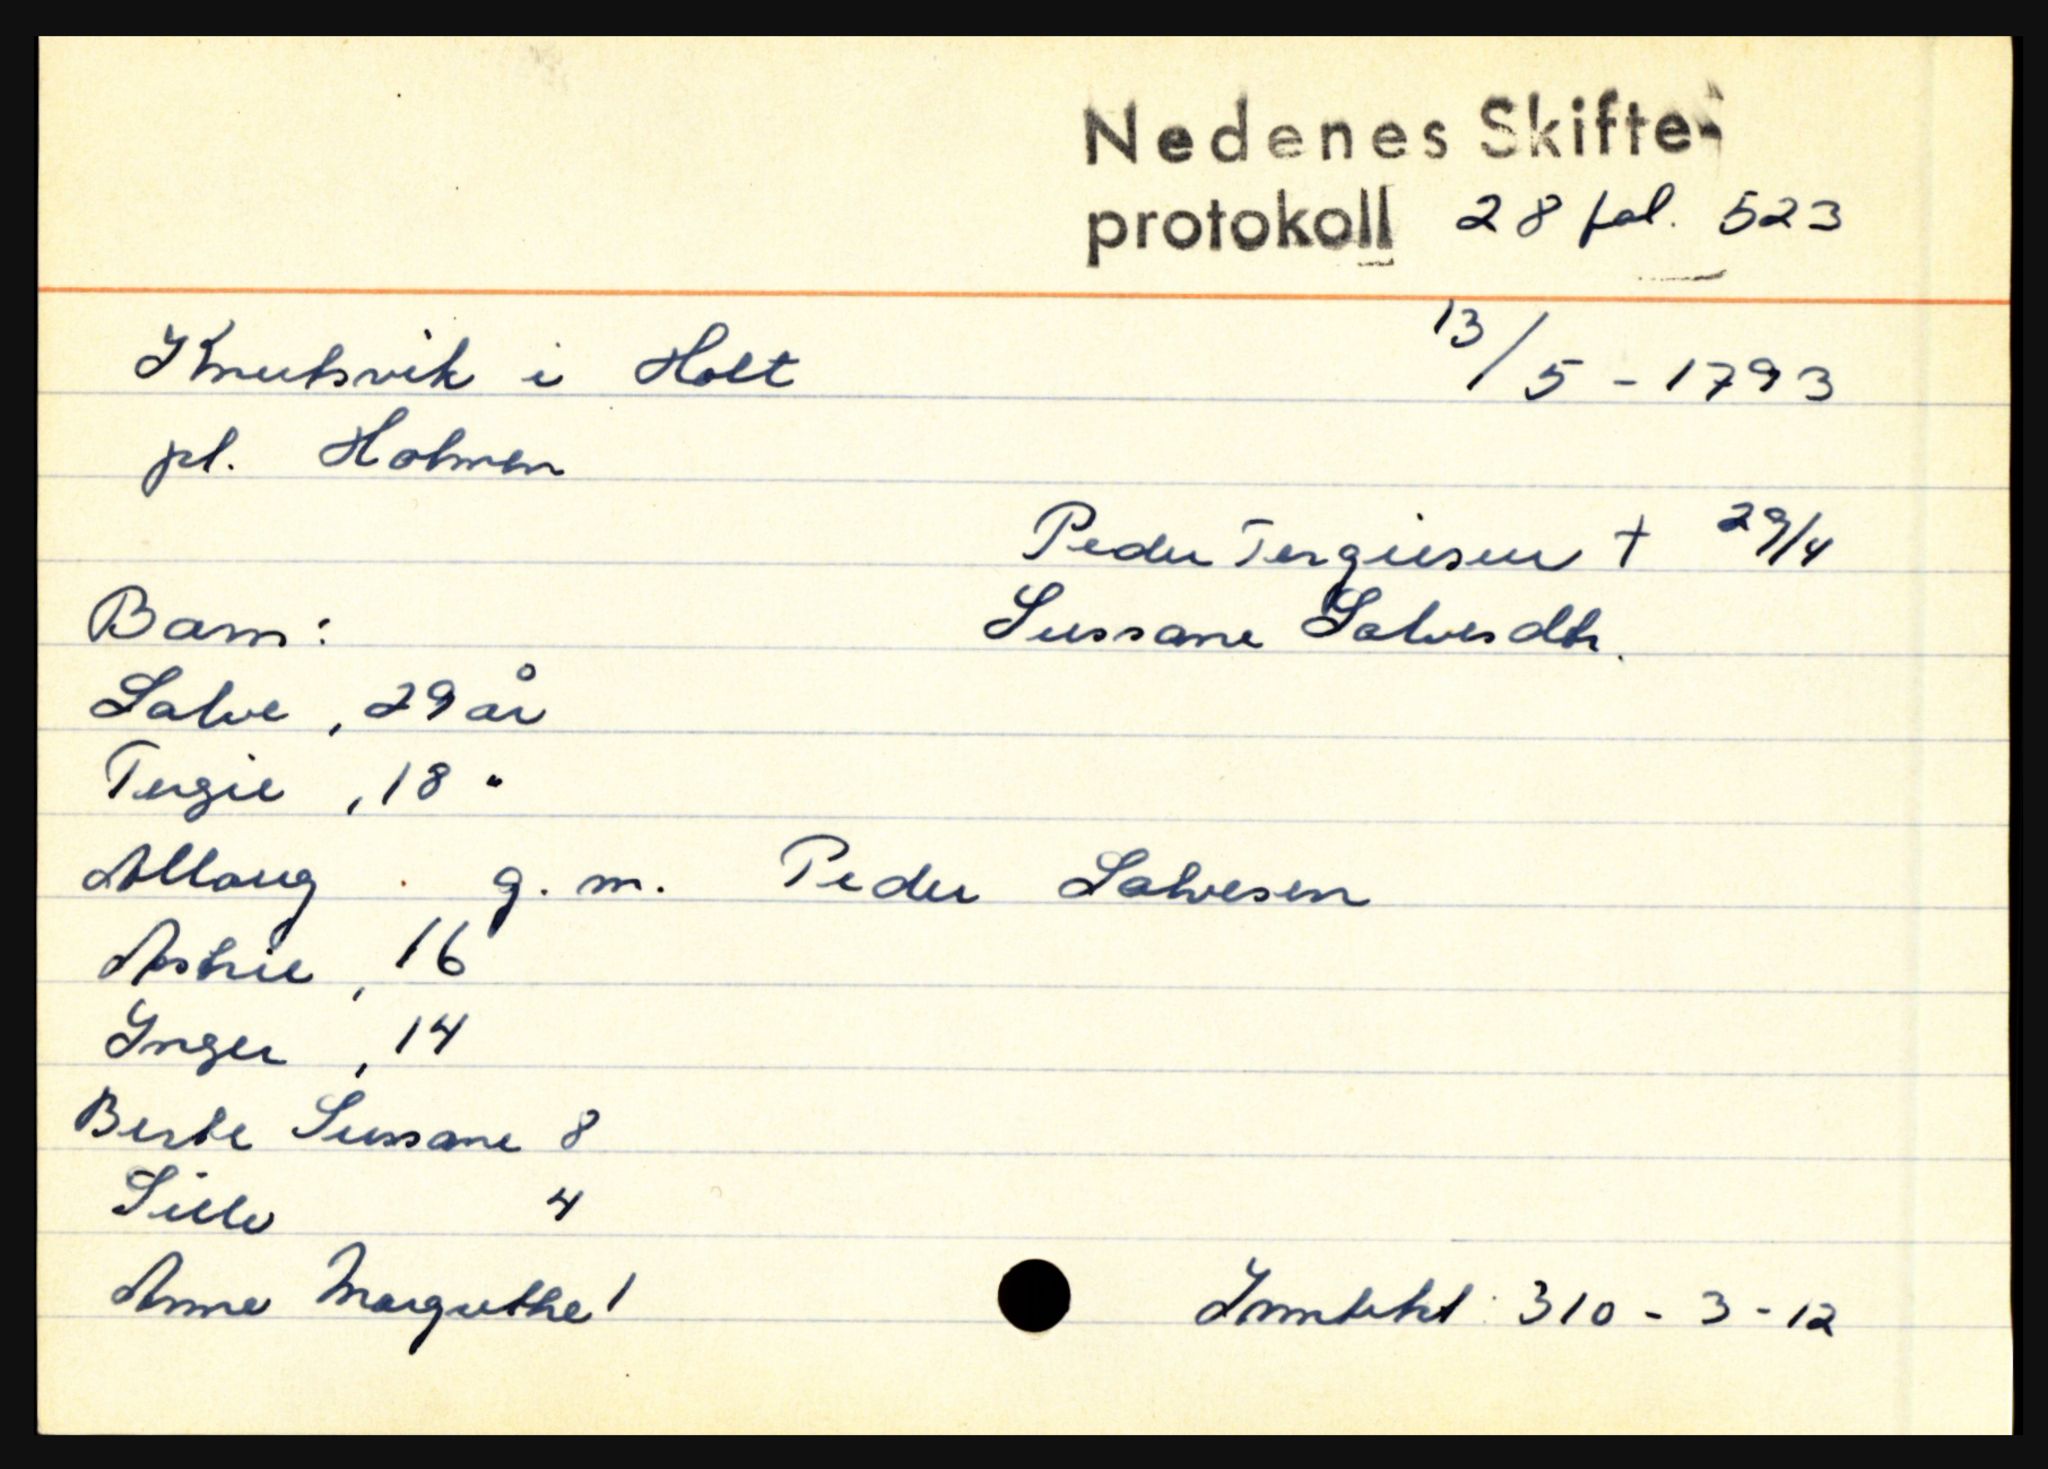 Nedenes Skifte-
protokoll 28 fol. 523
Knutsvik i Holt 13/5 - 1793
pl. Holmen
Peder Tergiesen † 29/4
Barn: Sussane Salvesdtr.
Salve, 29 år
Tergie, 18 "
Allaug g. m. Peder Salvesen
Astrie, 16
Inger, 14
Berte Sussane 8
Sille 4
Anne Margrethe 1 Inntekt 310 - 3 - 12